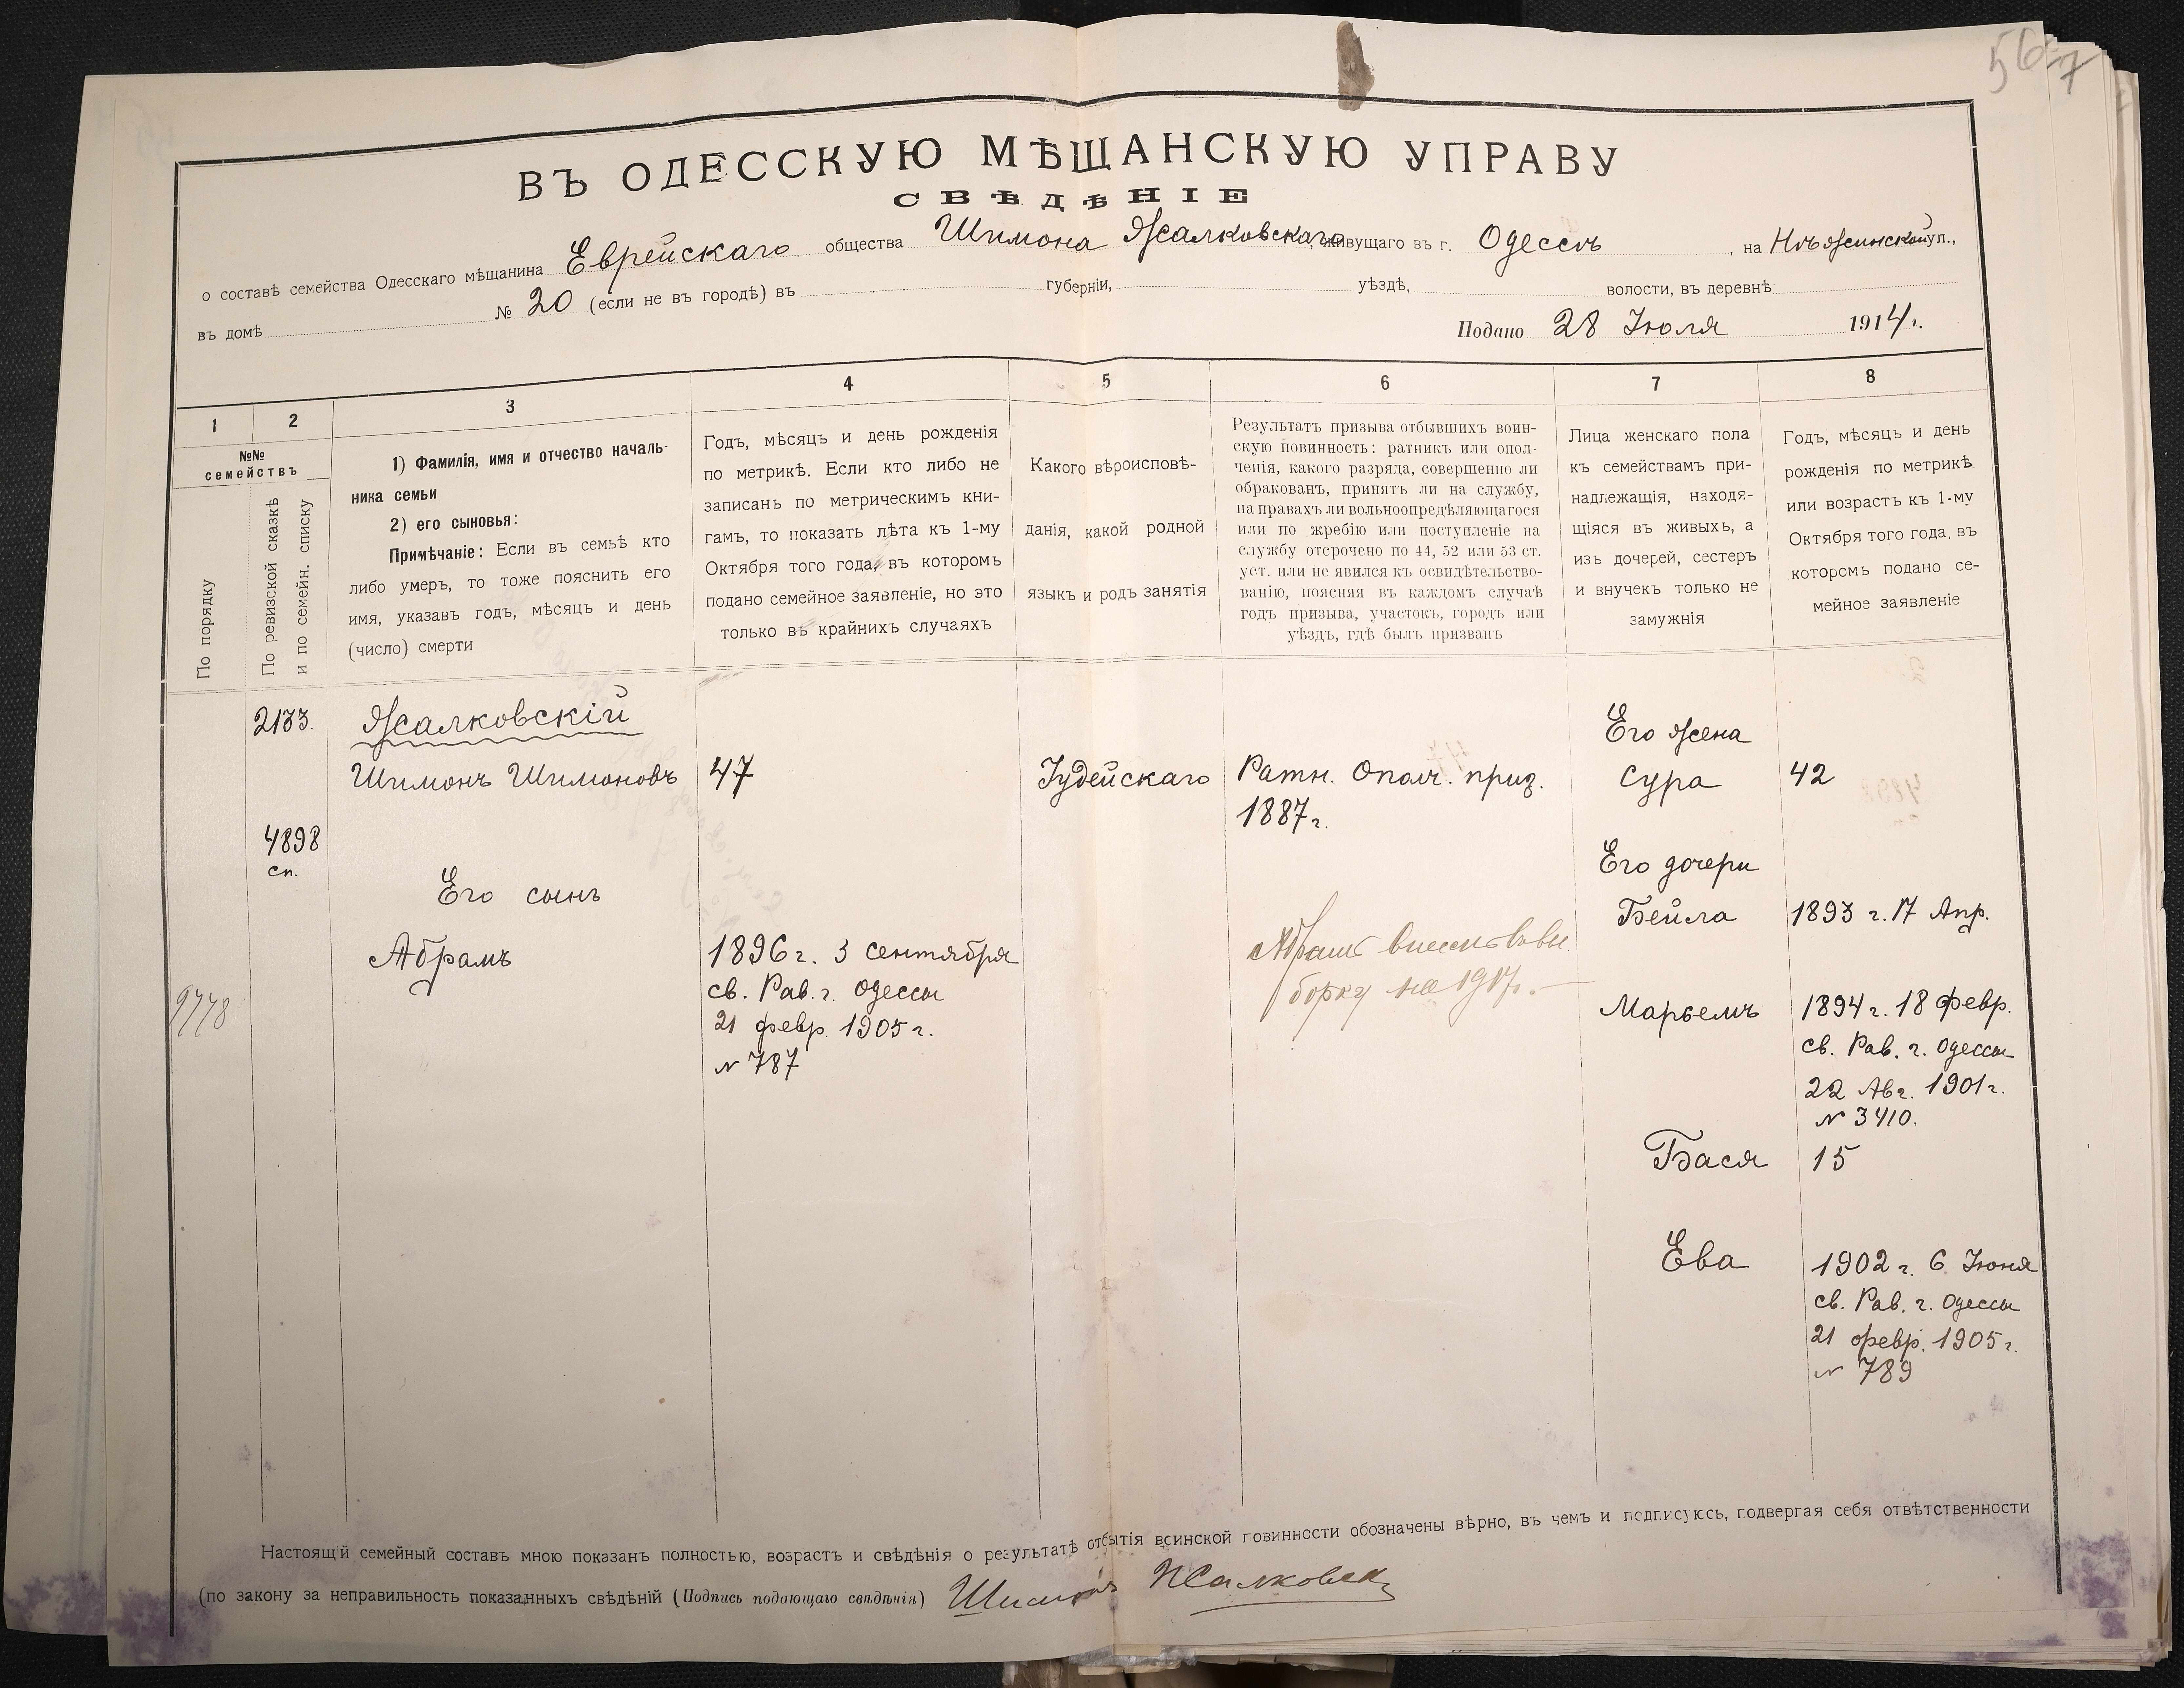 567
ВЪ ОДЕССКУЮ МѢЩАНСКУЮ УПРАВУ
СВѢДѢНІЕ
о составѣ семейства Одесскаго мѣщанина Еврейскаго общества Шимона Жалковскаго, живущаго въ г. Одессѣ, на Нѣжинской ул.,
въ домѣ № 20 (если не въ городѣ) въ губерніи, уѣздѣ, волости, въ деревнѣ
Подано 28 Июля 1914 г.
1 2 3 4 5 6 7 8
№№
семействъ
По порядку
По ревизской сказкѣ
и по семейн. списку
1) Фамилія, имя и отчество началь-
ника семьи
2) его сыновья:
Примѣчаніе: Если въ семьѣ кто
либо умеръ, то тоже пояснить его
имя, указавъ годъ, мѣсяцъ и день
(число) смерти
Годъ, мѣсяцъ и день рожденія
по метрикѣ. Если кто либо не
записанъ по метрическимъ кни-
гамъ, то показать лѣта къ 1-му
Октября того года, въ которомъ
подано семейное заявленіе, но это
только въ крайнихъ случаяхъ
Какого вѣроисповѣ-
данія, какой родной
языкъ и родъ занятія
Результатъ призыва отбывшихъ воин-
скую повинность: ратникъ или опол-
ченія, какого разряда, совершенно ли
обракованъ, принятъ ли на службу,
на правахъ ли вольноопредѣляющагося
или по жребію или поступленіе на
службу отсрочено по 44, 52 или 53 ст.
уст. или не явился къ освидѣтельство-
ванію, поясняя въ каждомъ случаѣ
годъ призыва, участокъ, городъ или
уѣздъ, гдѣ былъ призванъ
Лица женскаго пола
къ семействамъ при-
надлежащія, находя-
щіяся въ живыхъ, а
изъ дочерей, сестеръ
и внучекъ только не
замужнія
Годъ, мѣсяцъ и день
рожденія по метрикѣ
или возрастъ къ 1-му
Октября того года, въ
которомъ подано се-
мейное заявленіе
2133.
Жалковскій
Шимонъ Шимоновъ
47
Іудейскаго
Ратн. Ополч. приз.
1887 г.
Его жена
Сура
42
4898
сп.
Его сынъ
Абрамъ
1896 г. 3 сентября
св. Рав. г. Одессы
21 февр. 1905 г.
№ 787
Абрамъ
на 1917 г.
9778
Его дочери
Бейла
1893 г. 17 Апр.
Марьемъ
1894 г. 18 февр.
св. Рав. г. Одессы
22 Авг. 1901 г.
№ 3410.
Бася
15
Ева
1902 г. 6 Июня
св. Рав. г. Одессы
21 февр. 1905 г.
№ 789
Настоящій семейный составъ мною показанъ полностью, возрастъ и свѣдѣнія о результатѣ отбытія воинской повинности обозначены вѣрно, въ чемъ и подписуюсь, подвергая себя отвѣтственности
(по закону за неправильность показанныхъ свѣдѣній (Подпись подающаго свѣдѣнія) Шимонъ Жалковск